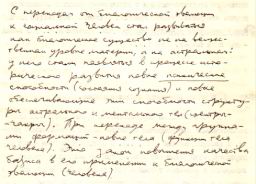 С переходом от биологической эволюции
к социальной Человек стал развиваться
как биологическое существо не на вещес-
твенном уровне материи, а на астральном:
у него стали появляться в процессе исто-
рического развития новые психические
способности (состояния сознания) и новые
обеспечивающие эти способности структу-
ры астрального и ментального тел (центры-
чакры). При переходе между крупны-
ми формаций - новые тела (функции тела
человека). Это закон повышения качества
базиса в его применении к биологической
эволюции (человека)